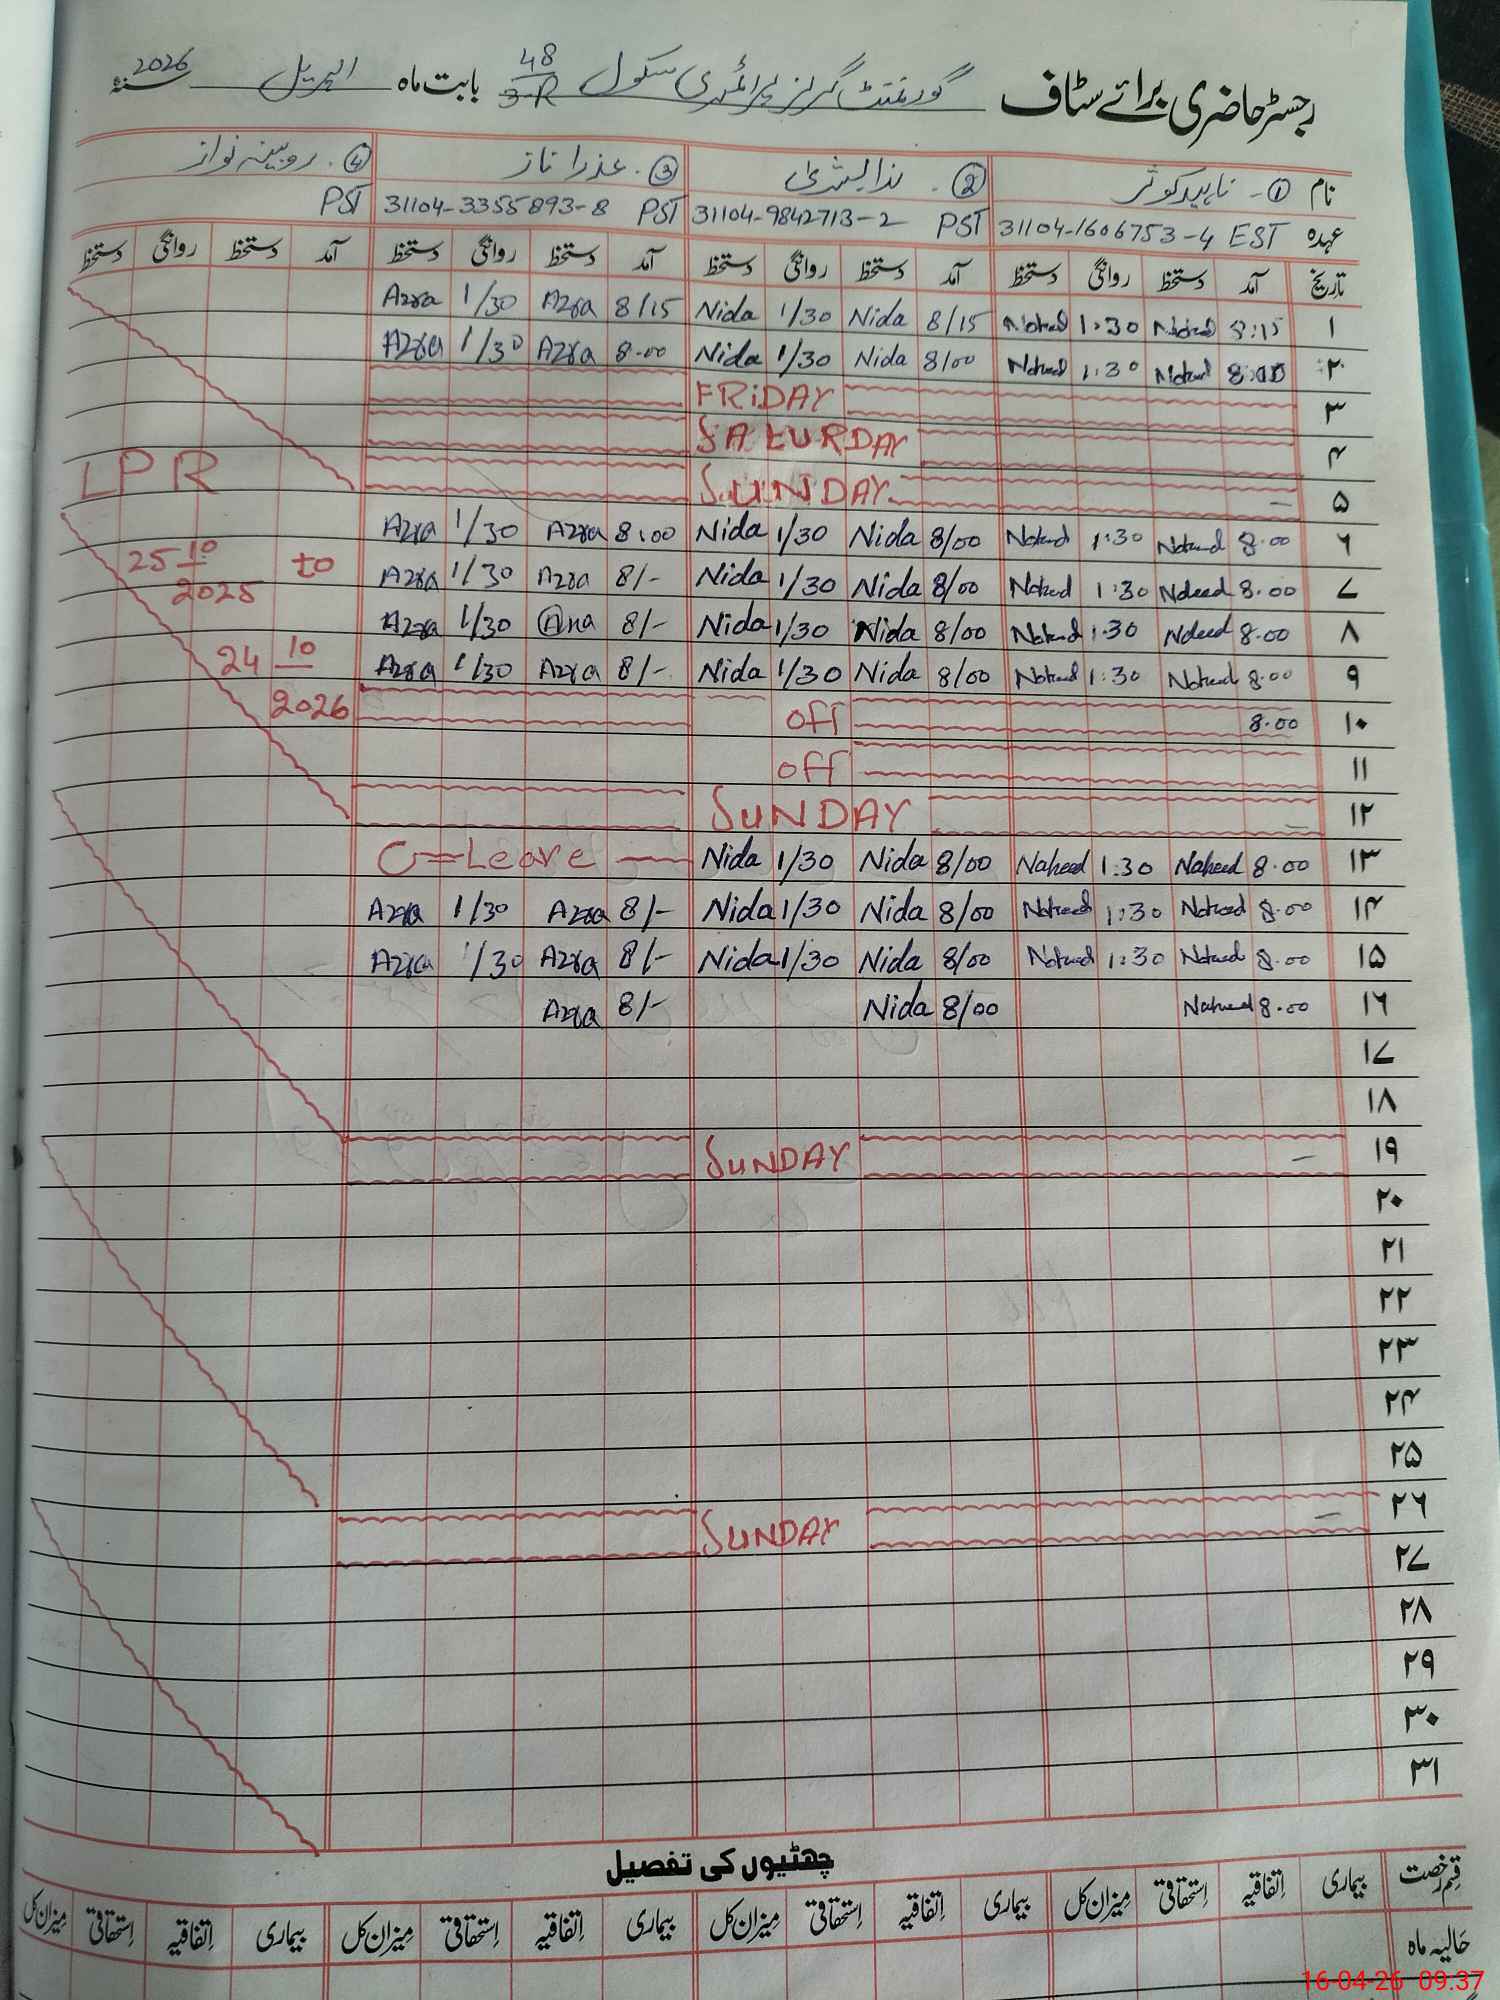 رجسٹر حاضری برائے سٹاف گورنمنٹ گرلز پرائمری سکول 48/3-R بابت ماہ اپریل سنہ 2026
نام ① ۔ ناہید کوثر ② ۔ ندا بشریٰ ③ ۔ عذرا ناز ④ ۔ روبینہ نواز
عہدہ EST 31104-1606753-4 PST 31104-9842713-2 PST 31104-3355893-8 PST
تاریخ آمد دستخط روانگی دستخط آمد دستخط روانگی دستخط آمد دستخط روانگی دستخط آمد دستخط روانگی دستخط
۱ 8:15 Naheed 1:30 Naheed 8/15 Nida 1/30 Nida 8/15 Azra 1/30 Azra
۲ Naheed 1:30 Naheed 8/00 Nida 1/30 Nida 8.00 Azra 1/30 Azra
۳ FRiDAY
۴ SATURDAY
۵ SUNDAY
LPR
۶ 8.00 Naheed 1:30 Naheed 8/00 Nida 1/30 Nida 8:00 Azra 1/30 Azra
25 10 2025 to
۷ 8.00 Naheed 1:30 Naheed 8/00 Nida 1/30 Nida 8/- Azra 1/30 Azra
۸ 8.00 Naheed 1:30 Naheed 8/00 Nida 1/30 Nida 8/- Azra 1/30 Azra
24 10 2026
۹ 8.00 Naheed 1:30 Naheed 8/00 Nida 1/30 Nida 8/- Azra 1/30 Azra
۱۰ 8.00 off
۱۱ off
۱۲ SUNDAY
۱۳ 8.00 Naheed 1:30 Naheed 8/00 Nida 1/30 Nida C=Leave
۱۴ 8.00 Naheed 1:30 Naheed 8/00 Nida 1/30 Nida 8/- Azra 1/30 Azra
۱۵ 8.00 Naheed 1:30 Naheed 8/00 Nida 1/30 Nida 8/- Azra 1/30 Azra
۱۶ 8.00 Naheed 8/00 Nida 8/- Azra
۱۷
۱۸
۱۹ SUNDAY
۲۰
۲۱
۲۲
۲۳
۲۴
۲۵
۲۶ SUNDAY
۲۷
۲۸
۲۹
۳۰
۳۱
چھٹیوں کی تفصیل
قسم رخصت بیماری اِتفاقیہ اِستحقاقی میزان کل بیماری اِتفاقیہ اِستحقاقی میزان کل بیماری اِتفاقیہ اِستحقاقی میزان کل بیماری اِتفاقیہ اِستحقاقی میزان کل
حالیہ ماہ
16-04-26 09:37